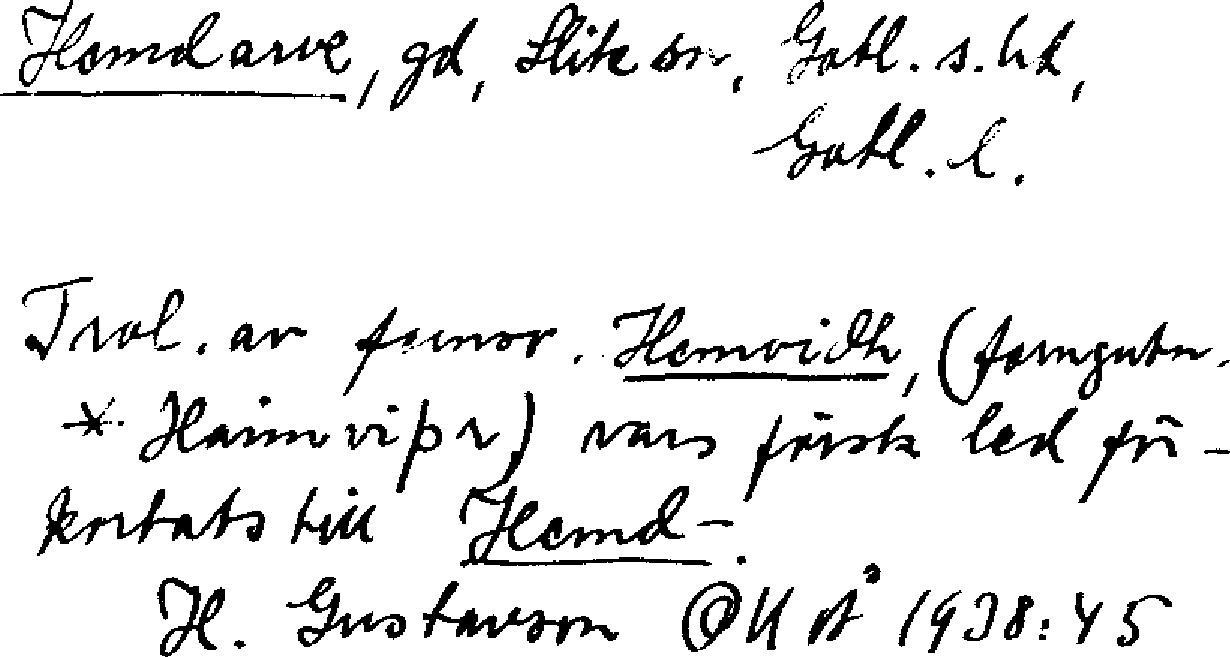 Hemdarve, gd, Slite sn, Gotl. s. hd,
Gotl. l.
Trol. av fornsv. Hemvidh, (forngutn.
* Haimviþr) vars första led för-
kortats till Hemd-.
H. Gustavson OUÅ 1938:45